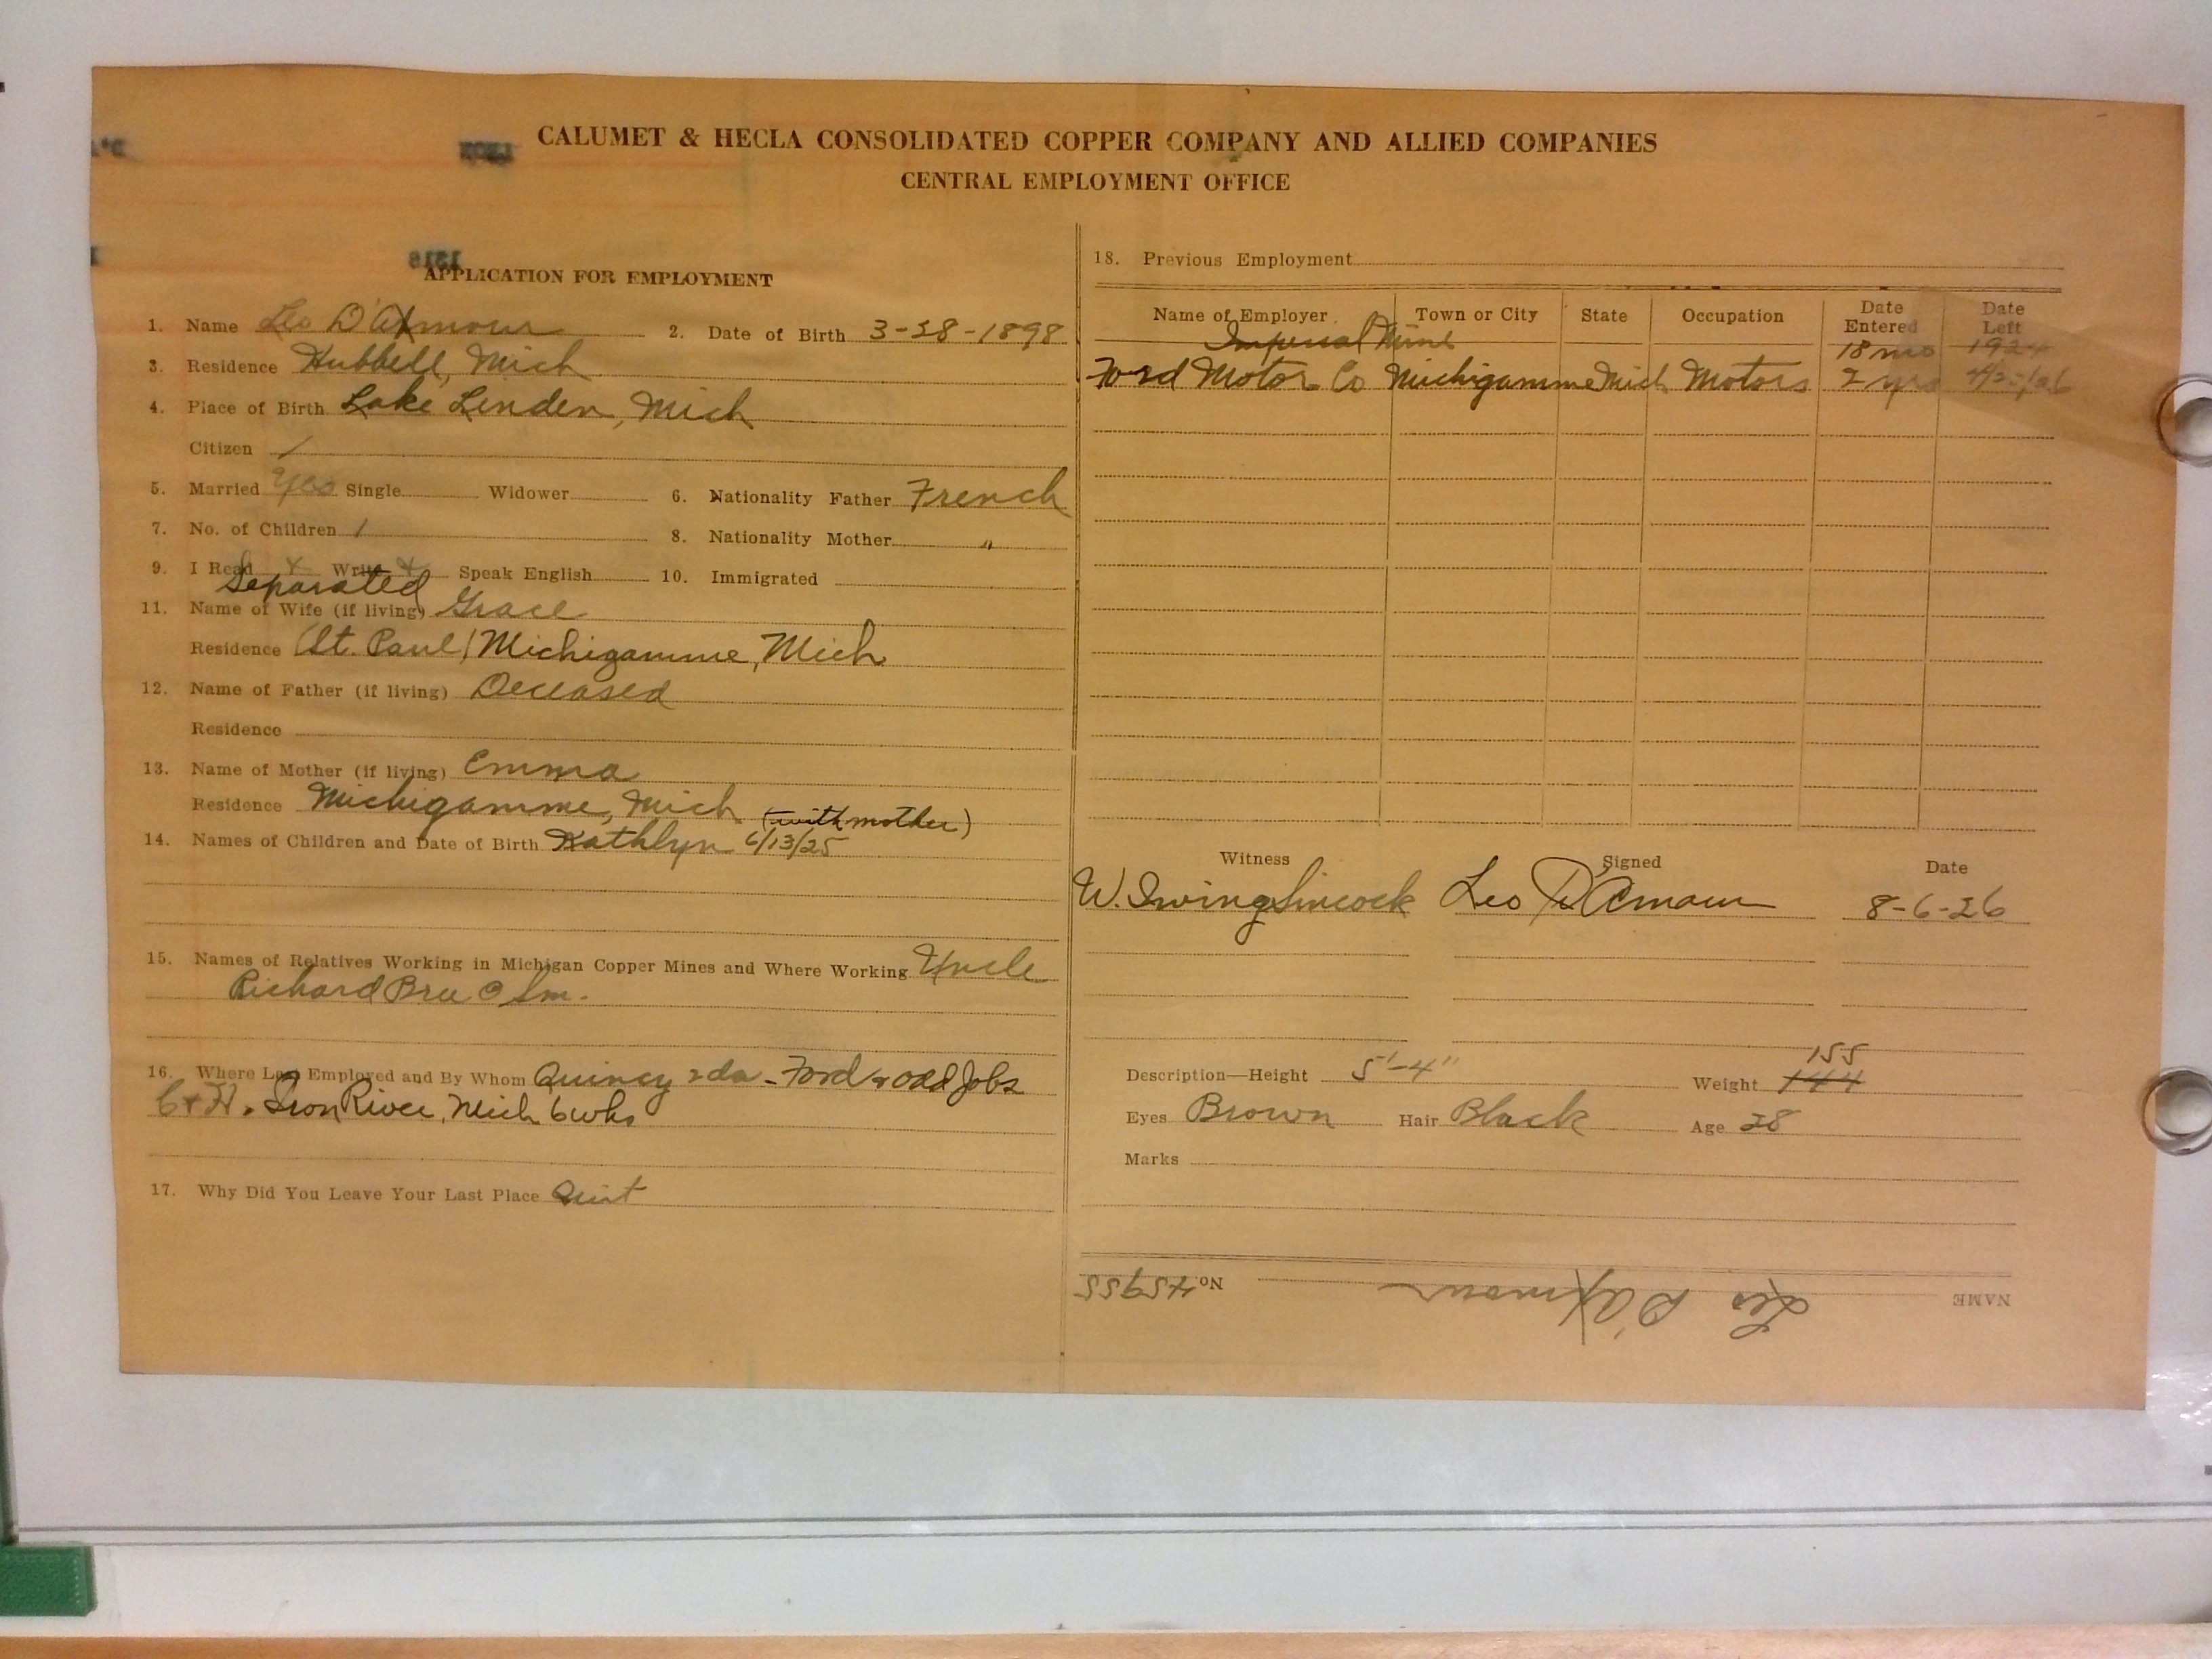 CALUMET & HECLA CONSOLIDATED COPPER COMPANY AND ALLIED COMPANIES
CENTRAL EMPLOYMENT OFFICE
1516
APPLICATION FOR EMPLOYMENT
1. Name Leo D'Amour 2. Date of Birth 3-28-1898
3. Residence Hubbell, Mich
4. Place of Birth Lake Linden, Mich
Citizen /
5. Married Yes Single Widower 6. Nationality Father French
7. No. of Children 1 8. Nationality Mother "
9. I Read x Write x Speak English 10. Immigrated
Separated
11. Name of Wife (if living) Grace
Residence (St. Paul) Michigamme, Mich
12. Name of Father (if living) Deceased
Residence
13. Name of Mother (if living) Emma
Residence Michigamme, Mich
(with mother)
14. Names of Children and Date of Birth Kathlyn 6/13/25
15. Names of Relatives Working in Michigan Copper Mines and Where Working Uncle
Richard Bree @ Sm.
16. Where Last Employed and By Whom Quincy 2da - Ford & odd Jobs
C+H. Iron River, Mich 6 wks
17. Why Did You Leave Your Last Place Quit
18. Previous Employment
Name of Employer Town or City State Occupation Date Entered Date Left
Imperial Mine 18 mo 1924
Ford Motor Co Michigamme Mich Motors 2 yrs
Witness Signed Date
W. Irving Sincock Leo D'Amour 8-6-26
155
Description—Height 5'-4" Weight 144
Eyes Brown Hair Black Age 28
Marks
NAME Leo D'Amour No. 475955